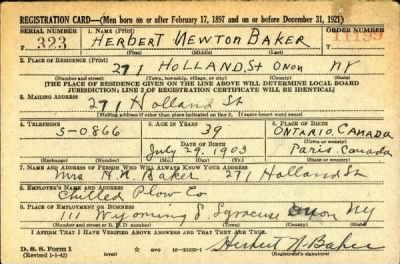 REGISTRATION CARD—(Men born on or after February 17, 1897 and on or before December 31, 1921)
SERIAL NUMBER 1. NAME (Print) ORDER NUMBER
T 323 HERBERT NEWTON BAKER 11199
(First) (Middle) (Last)
2. PLACE OF RESIDENCE (Print)
271 HOLLAND St ONON NY
(Number and street) (Town, township, village, or city) (County) (State)
[THE PLACE OF RESIDENCE GIVEN ON THE LINE ABOVE WILL DETERMINE LOCAL BOARD
JURISDICTION; LINE 2 OF REGISTRATION CERTIFICATE WILL BE IDENTICAL]
3. MAILING ADDRESS
271 Holland St
[Mailing address if other than place indicated on line 2. If same insert word same]
4. TELEPHONE 5. AGE IN YEARS 6. PLACE OF BIRTH
5-0866 39 ONTARIO, CANADA
DATE OF BIRTH (Town or county)
July 29, 1903 Paris Canada
(Exchange) (Number) (Mo.) (Day) (Yr.) (State or country)
7. NAME AND ADDRESS OF PERSON WHO WILL ALWAYS KNOW YOUR ADDRESS
Mrs H. N. Baker 271 Holland St
8. EMPLOYER'S NAME AND ADDRESS
Chilled Plow Co
9. PLACE OF EMPLOYMENT OR BUSINESS
111 Wyoming S. Syracuse Onon NY
(Number and street or R. F. D. number) (Town) (County) (State)
I AFFIRM THAT I HAVE VERIFIED ABOVE ANSWERS AND THAT THEY ARE TRUE.
D. S. S. Form 1
(Revised 1-1-42) (over) GPO Herbert N. Baker